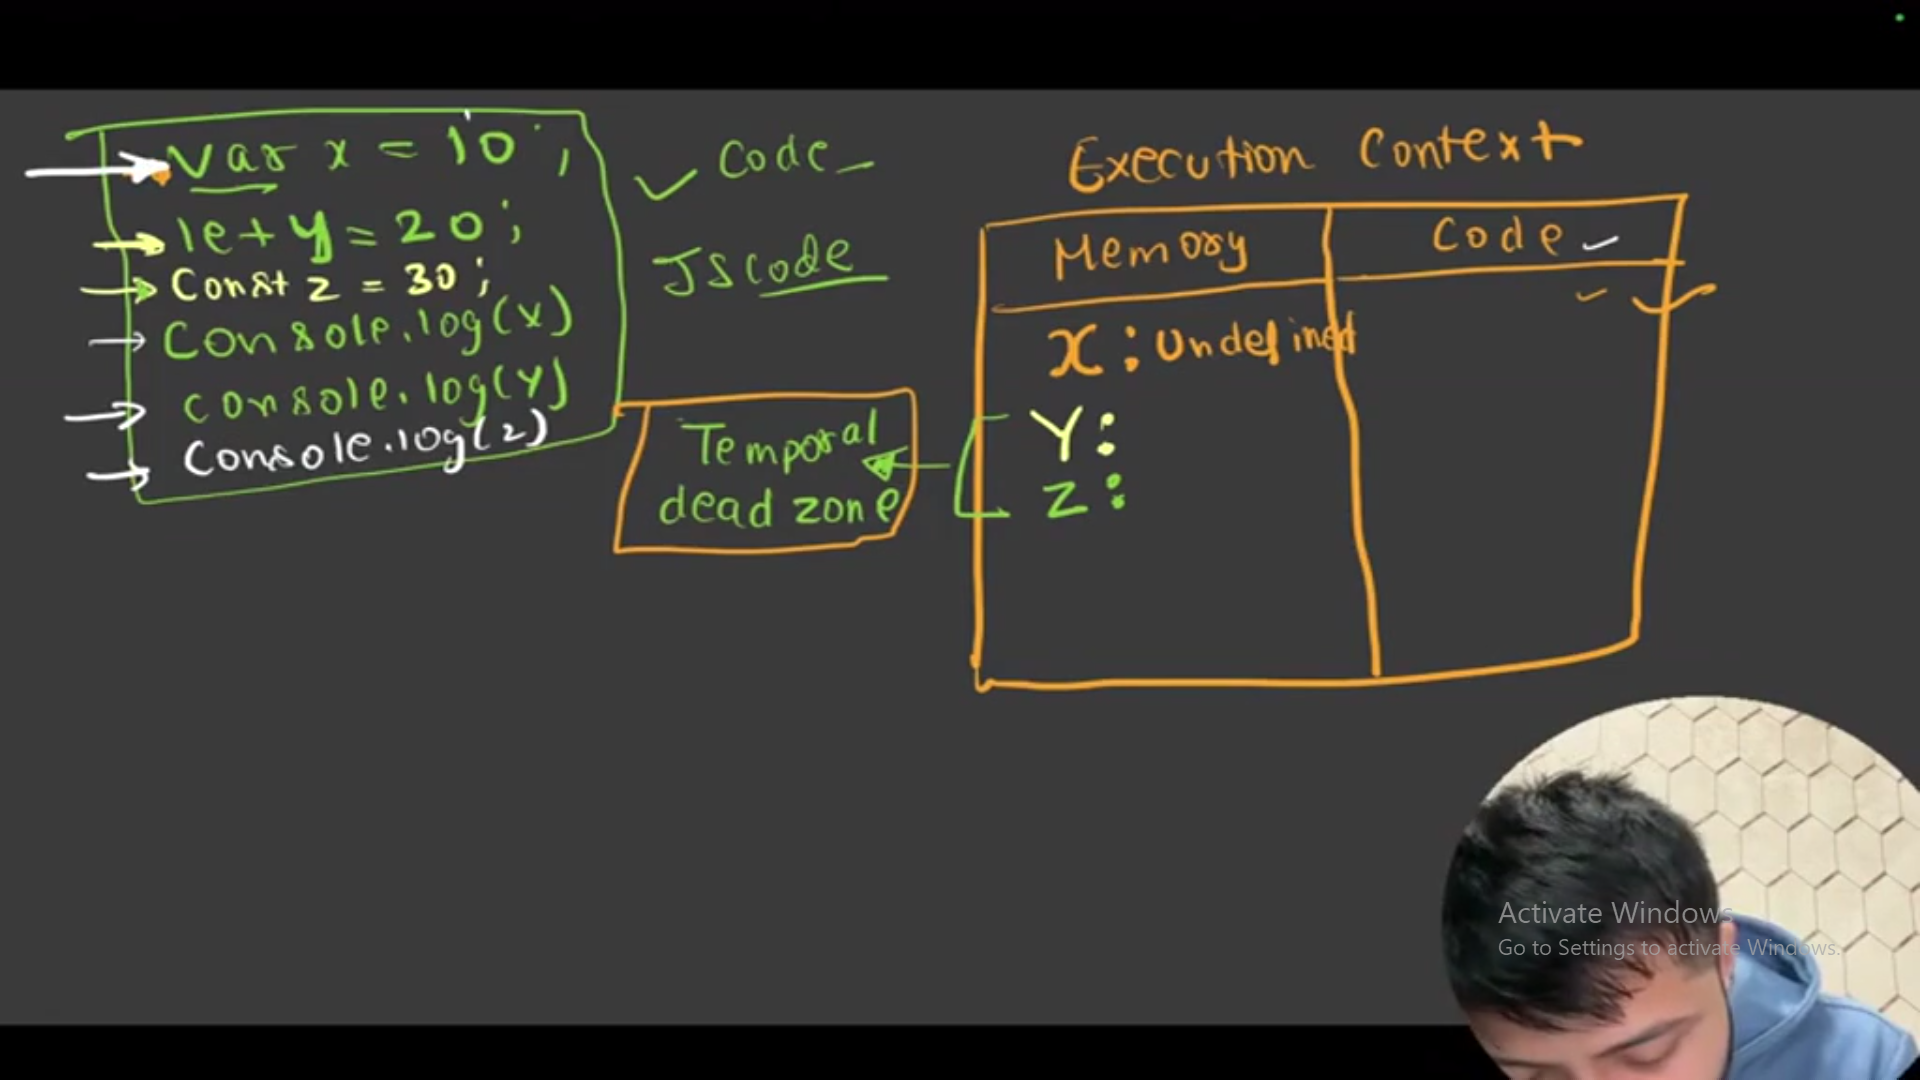 var x = 10;
let y = 20;
Const z = 30;
Console.log(x)
console.log(y)
Console.log(z)
Code
JScode
Temporal
dead zone
Execution Context
Memory
Code
x: Undefined
Y:
Z:
Activate Windows
Go to Settings to activate Windows.